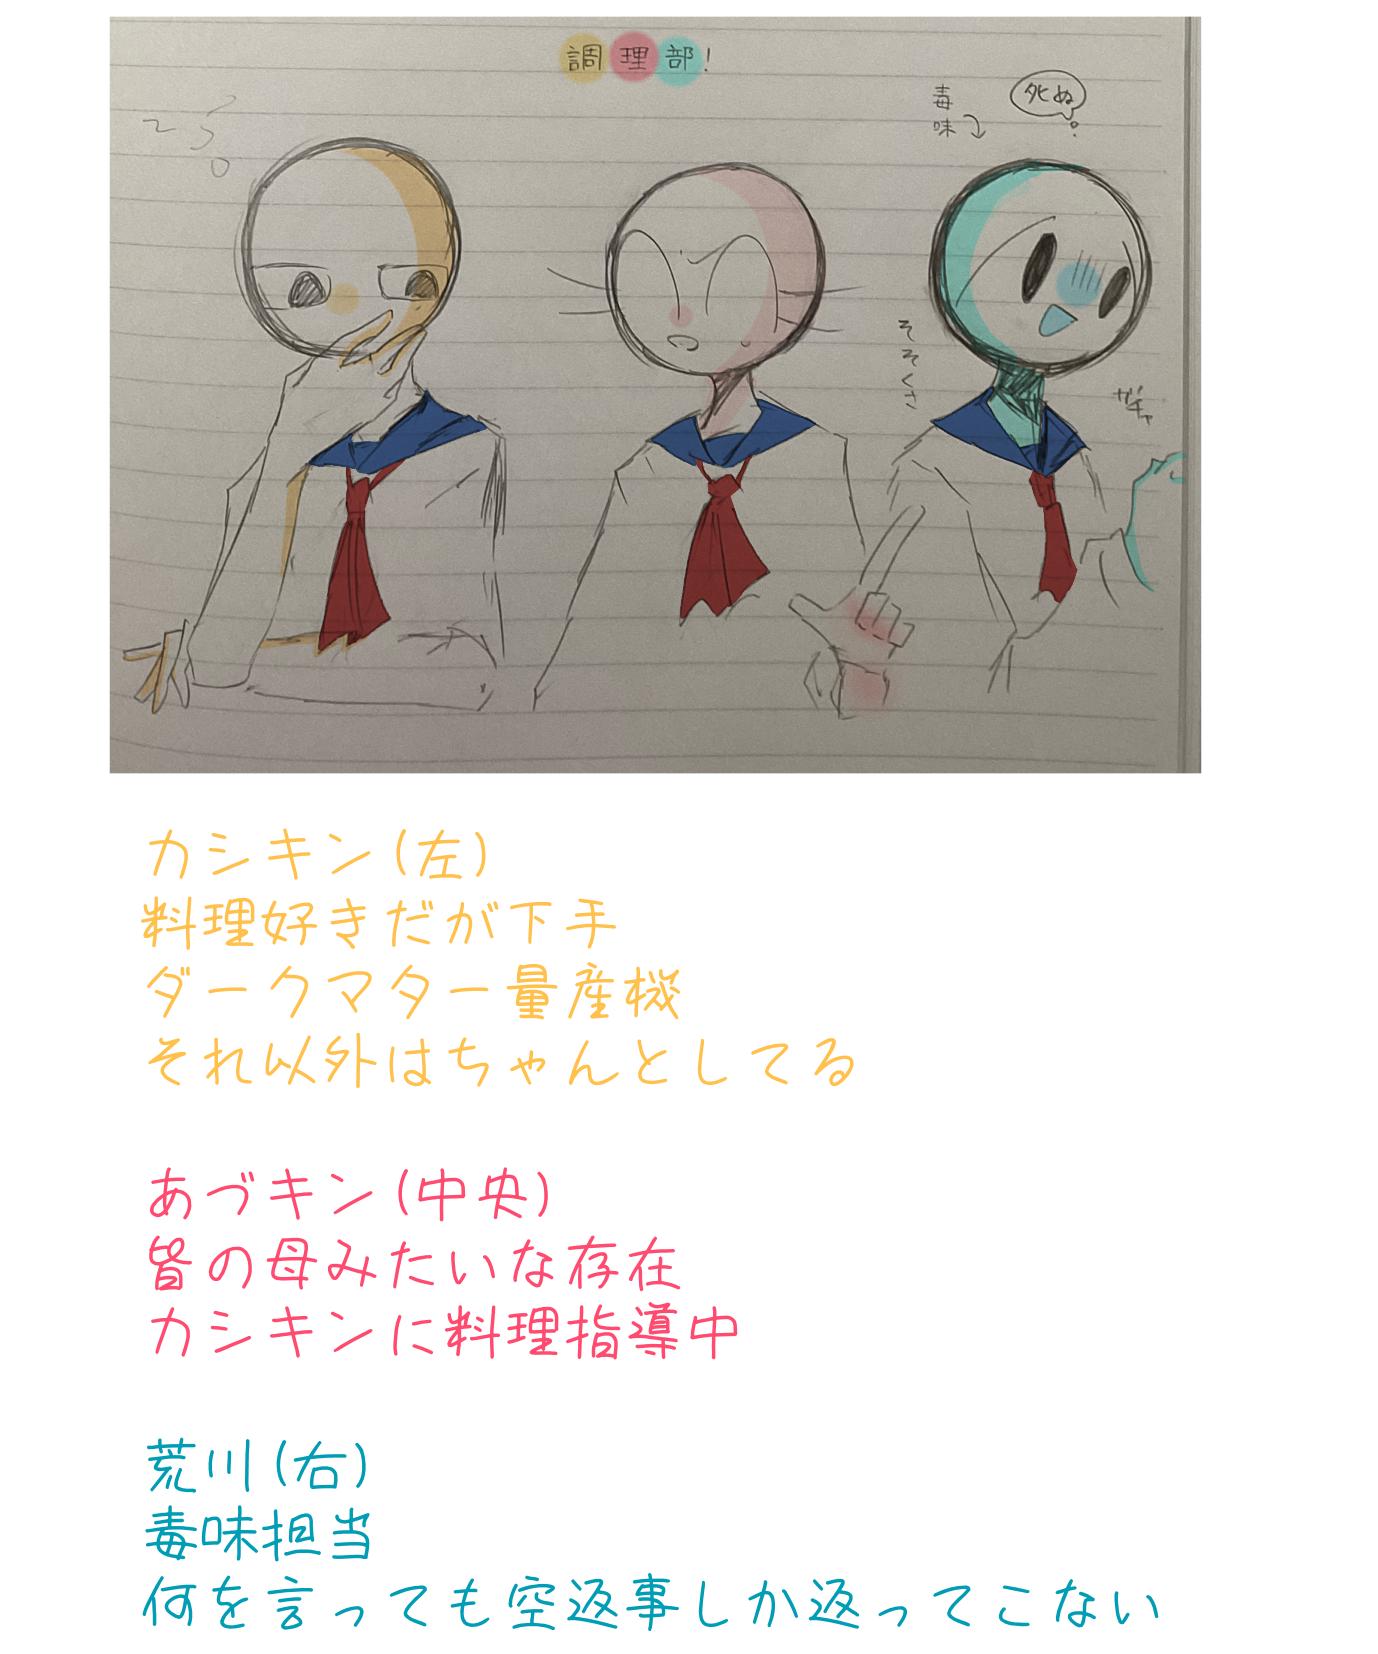 調理部!
毒
味
死ぬ
そそくさ
ガチャ
カシキン(左)
料理好きだが下手
ダークマター量産機
それ以外はちゃんとしてる
あづキン(中央)
皆の母みたいな存在
カシキンに料理指導中
荒川(右)
毒味担当
何を言っても空返事しか返ってこない